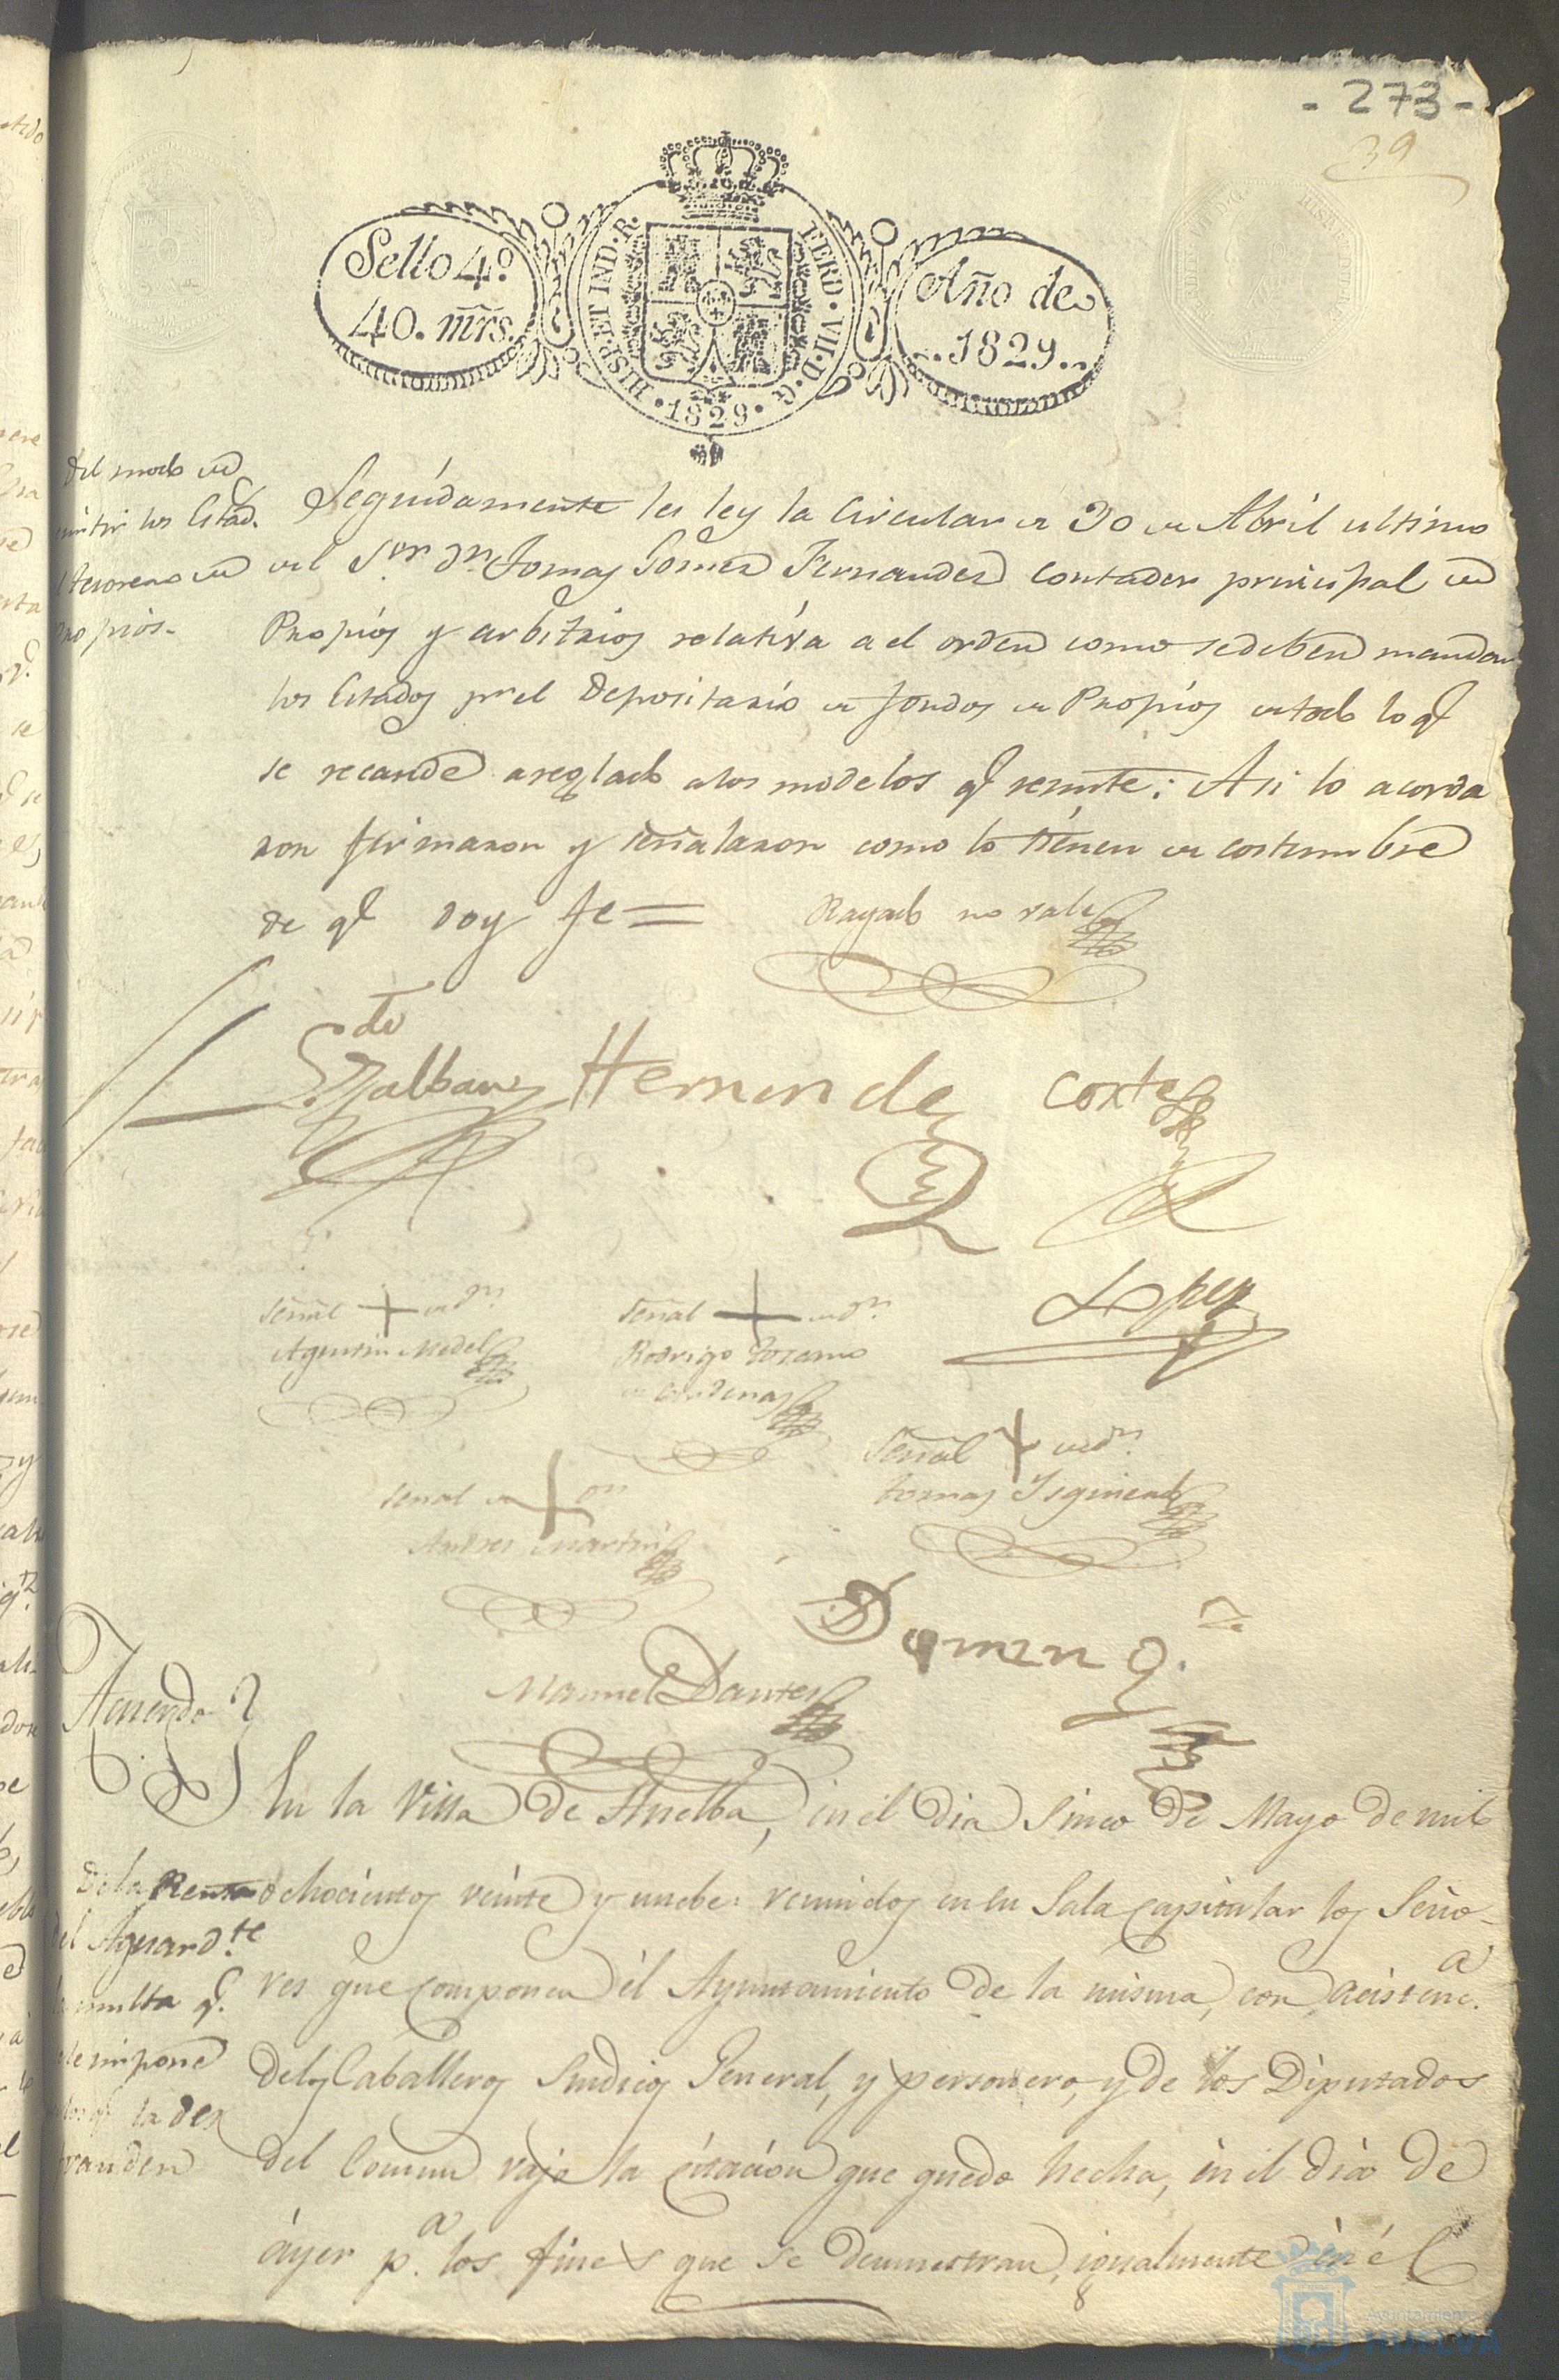 - 273 -
39
Sello 4º
40. mrs.
HISP. ET IND. R.
FERD. VII. D. G.
1829
Año de
1829.
del modo de
los Estad.
tesorero de
Propios.
Seguidamente se ley la Circular de 30 de Abril ultimo
del Sor. Dn. Tomas Gomez Fernandez Contador principal de
Propios y arbitrios relativa a el orden como se deben mandar
los Estados pr el Depositario de fondos de Propios de todo lo q
se recaude areglado a los modelos q remite: Asi lo acorda
ron firmaron y señalaron como lo tienen de costumbre
de q doy fe =
Rayado no vale
Hernandez Cortes
Lopez
Señal de Dn.
Agustin Medel
Señal de Dn.
Rodrigo Lozano
de Cardenas
Señal de Dn.
Tomas Ysquierdo
Señal de Dn
Andres Martin
Manuel Dantes
Acuerdo
En la Villa de Huelba, en el dia Sinco de Mayo de mil
ochocientos veinte y nuebe: reunidos en su Sala Capitular los Seño-
res que componen el Ayuntamiento de la misma, con acistenc.a
de los Caballeros Sindicos General, y personero, y de los Diputados
del Comun vajo la citacion que quedo hecha, en el dia de
áyer p.a los fines que se demuestran, igualmente en él
De la Renta
del Aguard.te
multa q.
se impone
la des
Ayuntamiento
HUELVA